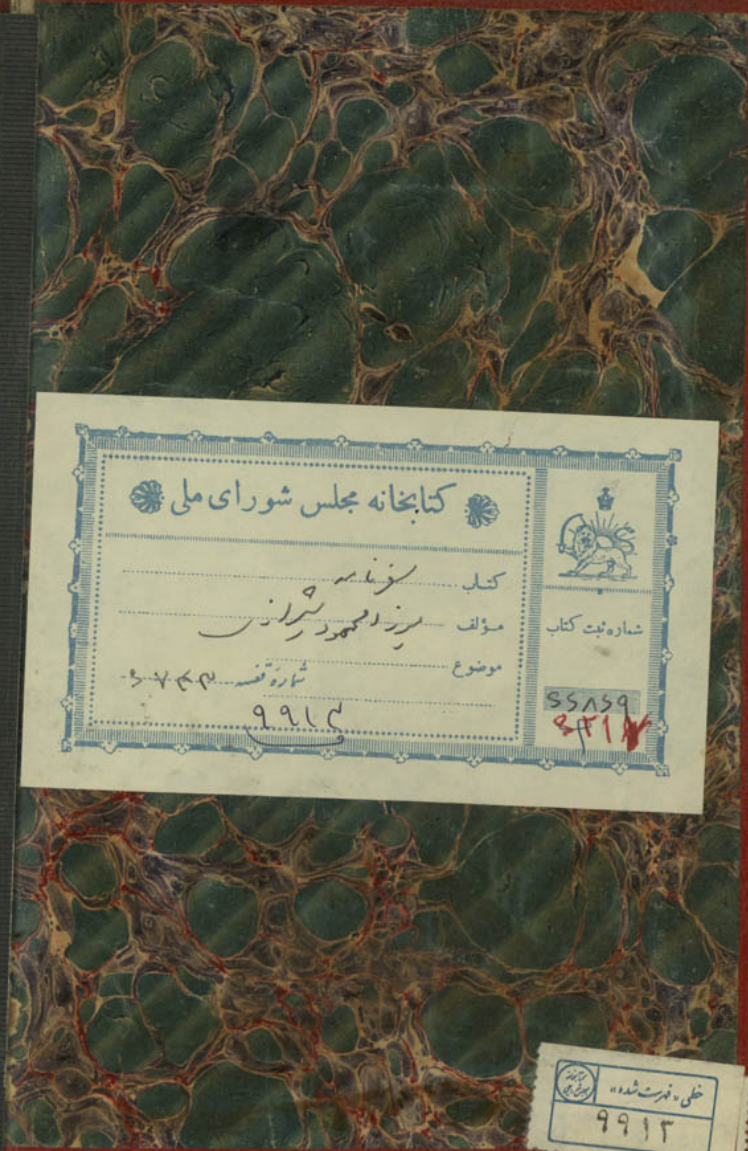 کتابخانه مجلس شورای ملی
کتاب سفرنامه
مؤلف میرزا محمود شیرازی
موضوع
شماره قفسه
۹۹۱۳
شماره ثبت کتاب
۶۶۸۶۹
خطی «فهرست شده»
۹۹۱۳